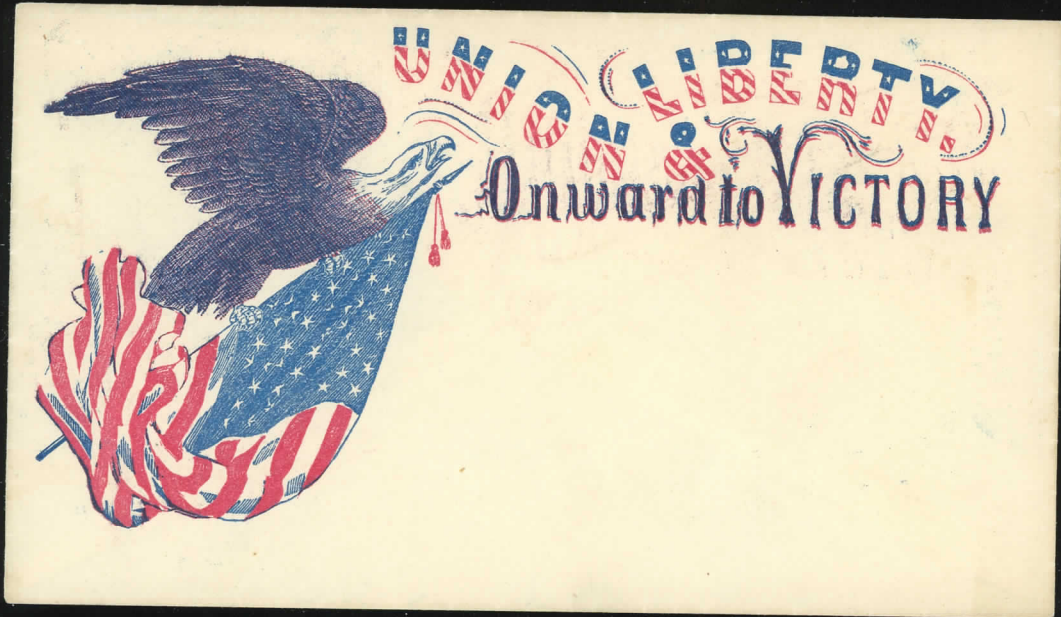 UNION & LIBERTY,
Onward to VICTORY